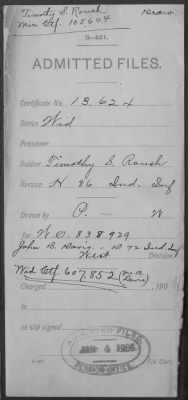 Timothy S. Roush Draw
Min Ctf. 105,644
3—401.
ADMITTED FILES.
Certificate No. 13,624
Series Wid
Pensioner
Soldier Timothy S. Roush
Service H 86 Ind. Inf
Drawn by P. — W
for W.O. 838929
John B. Davis — D 72 Ind. Inf
West Division.
Wid Ctf. 607,852
Charged 190
on slip signed
ADMITTED FILES,
JAN 4
PENSION OFFICE.
File Clerk.